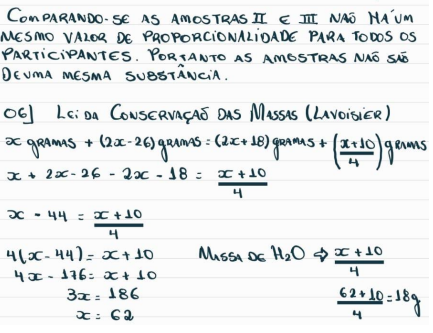 COMPARANDO-SE AS AMOSTRAS II E III NÃO HÁ UM
MESMO VALOR DE PROPORCIONALIDADE PARA TODOS OS
PARTICIPANTES. PORTANTO AS AMOSTRAS NÃO SÃO
DE UMA MESMA SUBSTÂNCIA.
06] LEI DA CONSERVAÇÃO DAS MASSAS (LAVOISIER)
x GRAMAS + (2x-26) GRAMAS = (2x+18) GRAMAS + (x+10/4) GRAMAS
x + 2x - 26 - 2x - 18 = x+10/4
x - 44 = x+10/4
4(x-44) = x+10
4x - 176 = x+10
3x = 186
x = 62
MASSA DE H2O ⇨ x+10/4
62+10/4 = 18g